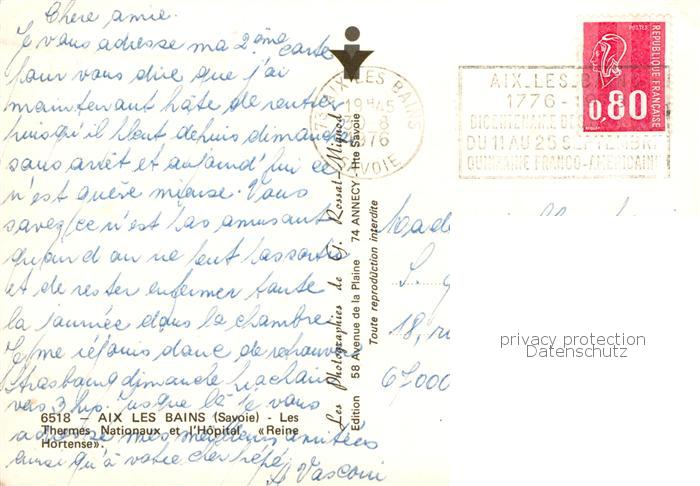 Chere amie.
Je vous adresse ma 2ème carte
pour vous dire que j'ai
maintenant hâte de rentrer
puisqu'il pleut depuis dimanche
sans arrêt et aujourd'hui ce
n'est guère mieux. Vous
savez ce n'est pas amusant
quand on ne peut pas sortir
et de rester enfermer toute
la journée dans la chambre
Je me réjouis donc de retrouver
Strasbourg dimanche prochain
vers 3 hrs. Jusque là je vous
adresse mes meilleurs amitiés
ainsi qu'à votre cher pépé
Vasconi
6518 — AIX LES BAINS (Savoie) - Les
Thermes Nationaux et l'Hôpital «Reine
Hortense».
Les Photographies de G. Rossat-Mignod
Edition 58 Avenue de la Plaine 74 ANNECY - Hte Savoie
Toute reproduction interdite
73 AIX LES BAINS
19H45
-8
1976
SAVOIE
AIX_LES_B
1776-1
BICENTENAIRE DE
DU 11 AU 25 SEPTEMBR
QUINZAINE FRANCO-AMERICAIN
POSTES
REPUBLIQUE FRANÇAISE
0,80
Mad
18, ru
67000
privacy protection
Datenschutz